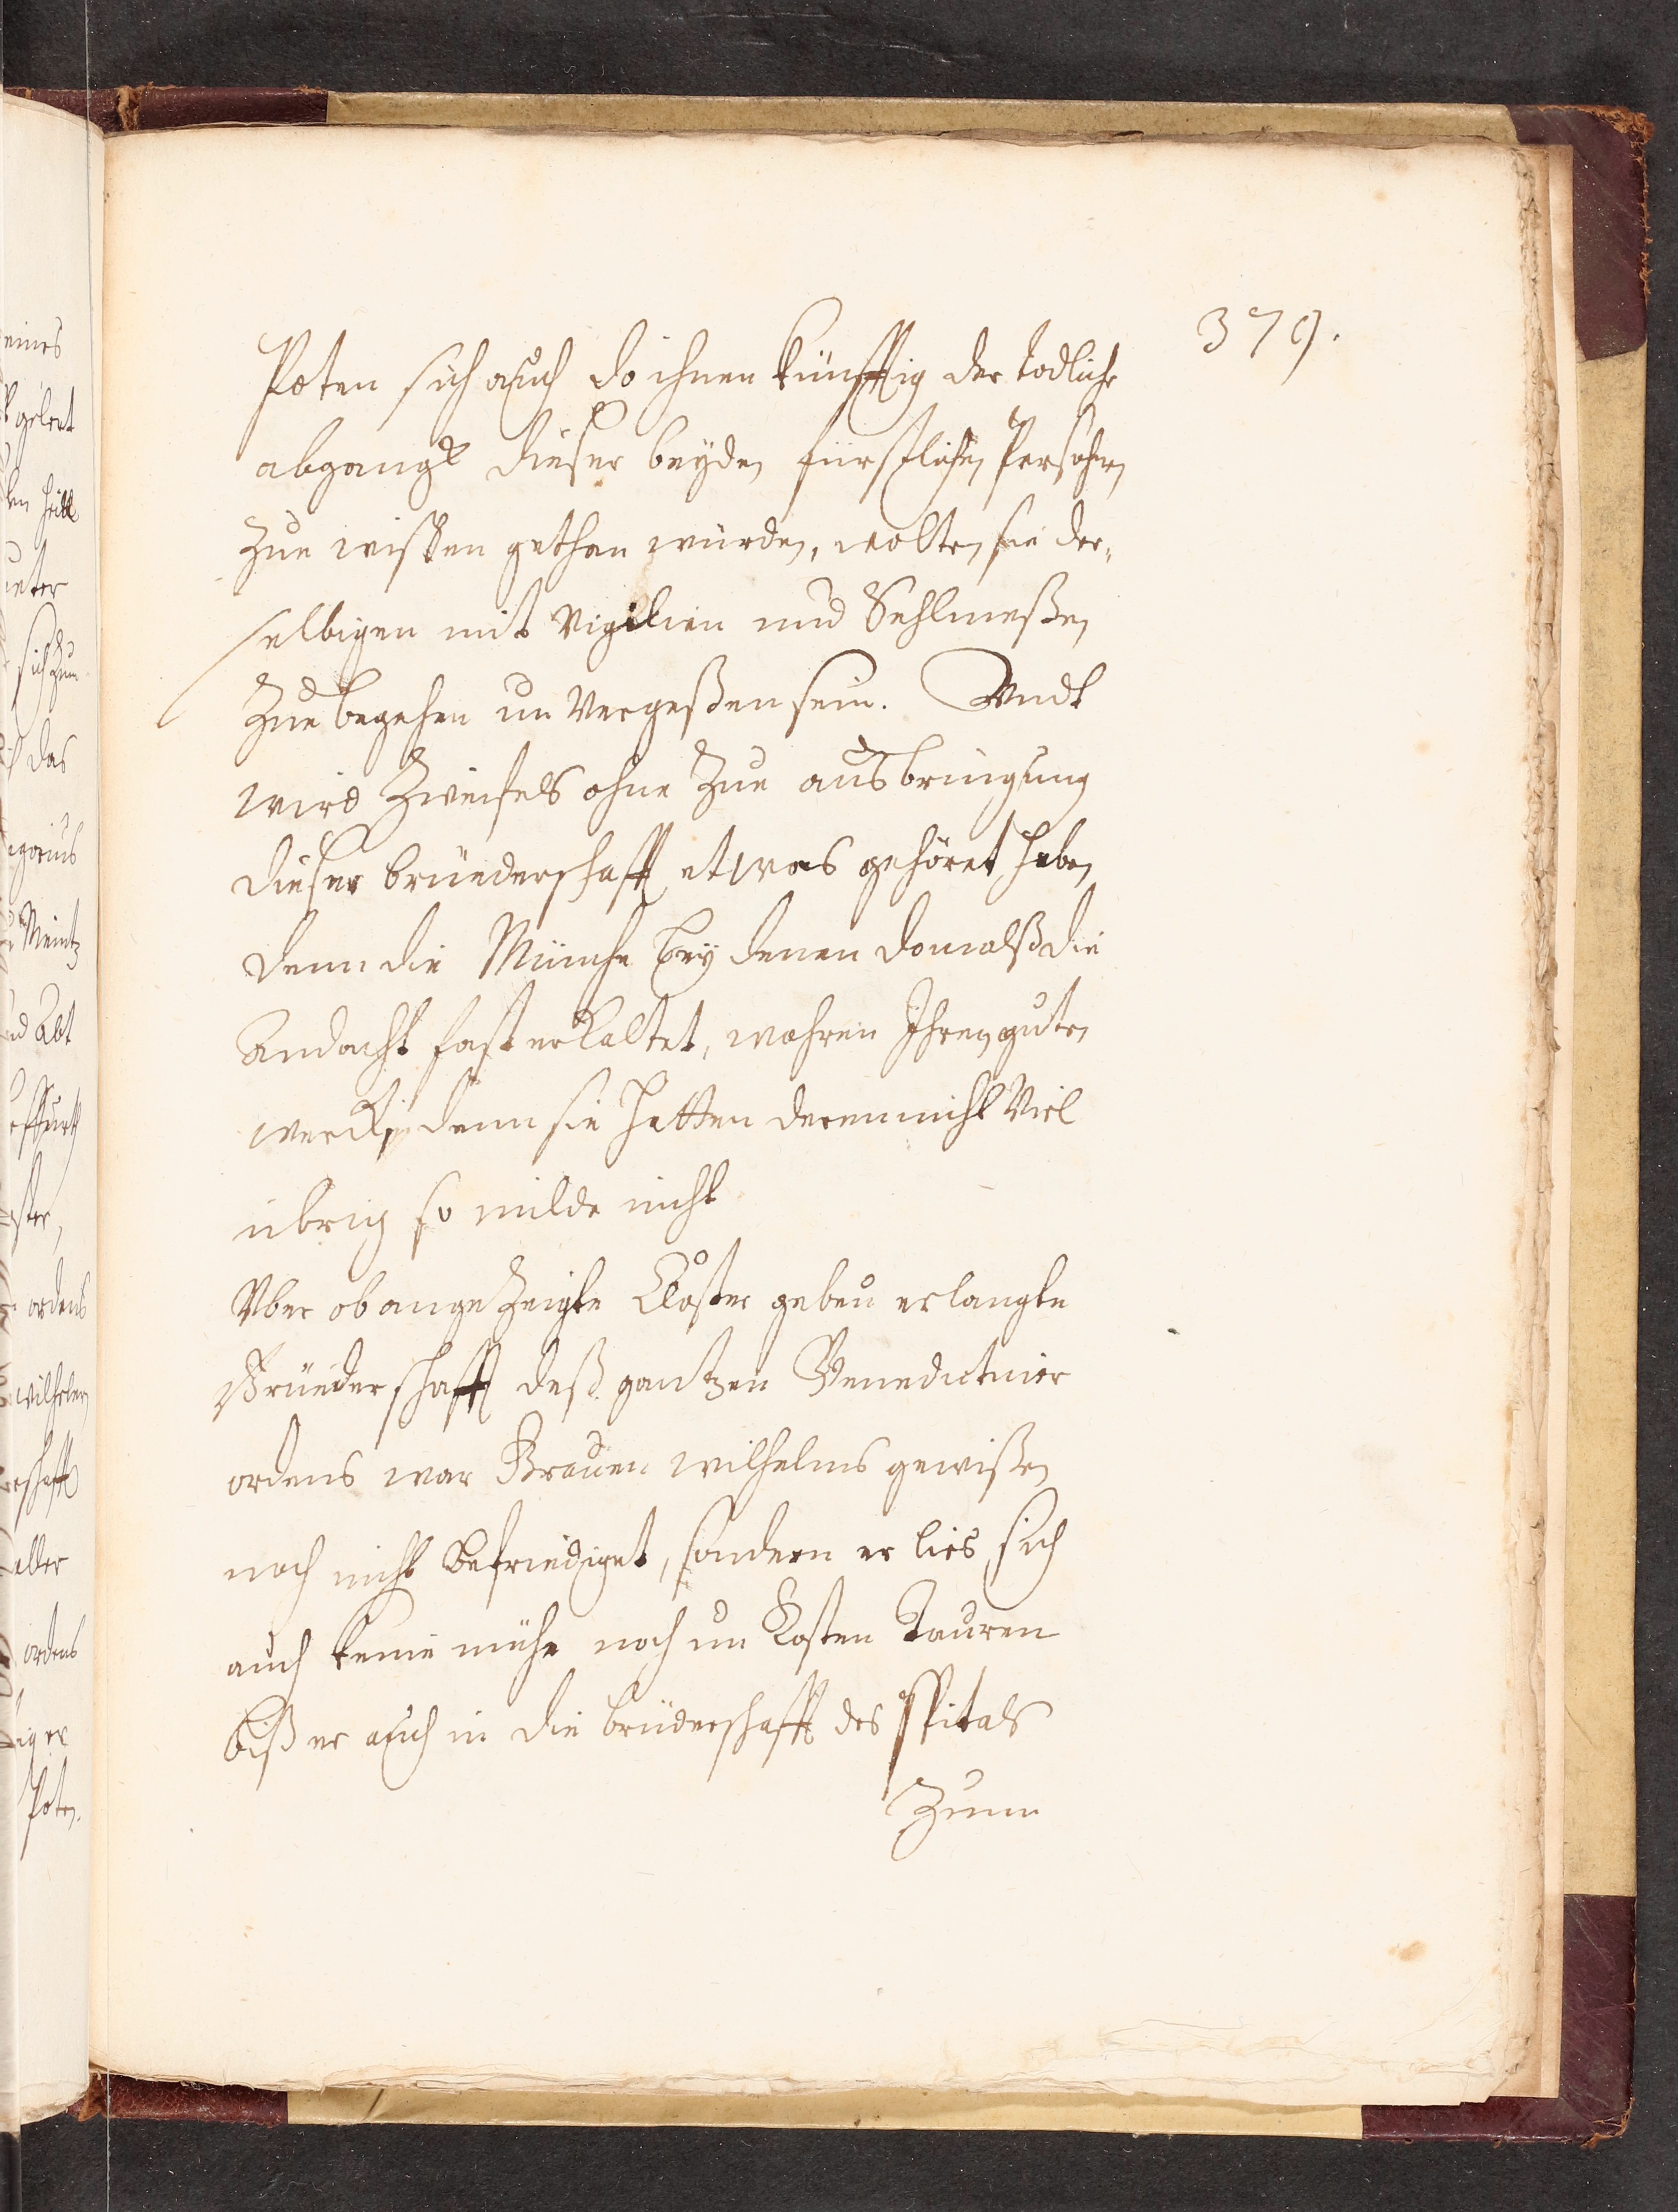 379.
Poten sich auch do ihnen künfftig der todliche
abgangk dieser beyden fürstlichen Persohnen
Zue wissen gethan würden, wolten sie der,
selbigen mit Vigilien und Sehlmeßen
Zue begehen un Vergeßen sein. Vndt
wird Zweifels ohne Zue ausbringung
dieser brüederschafft etwas gehöret haben
denn die Münche bey denen domalß die
Andacht fast erkaltet, wahren Ihren guten
werck denn sie hetten deren nicht Viel
übrig so milde nicht
Vber ob angezeigte Closter geben erlangte
Brüederschafft deß gantzen Benedictiner
ordens war Grauen wilhelms gewißen
noch nicht befriediget, sondern er lies sich
auch keine mühe noch un Kosten tauren
biß er auch in die brüderschafft des spitals
Zum
eines
gelert
sich Zum
das
Meintz
Abt
ordens
wilhelm
aller
ordens
Poten.